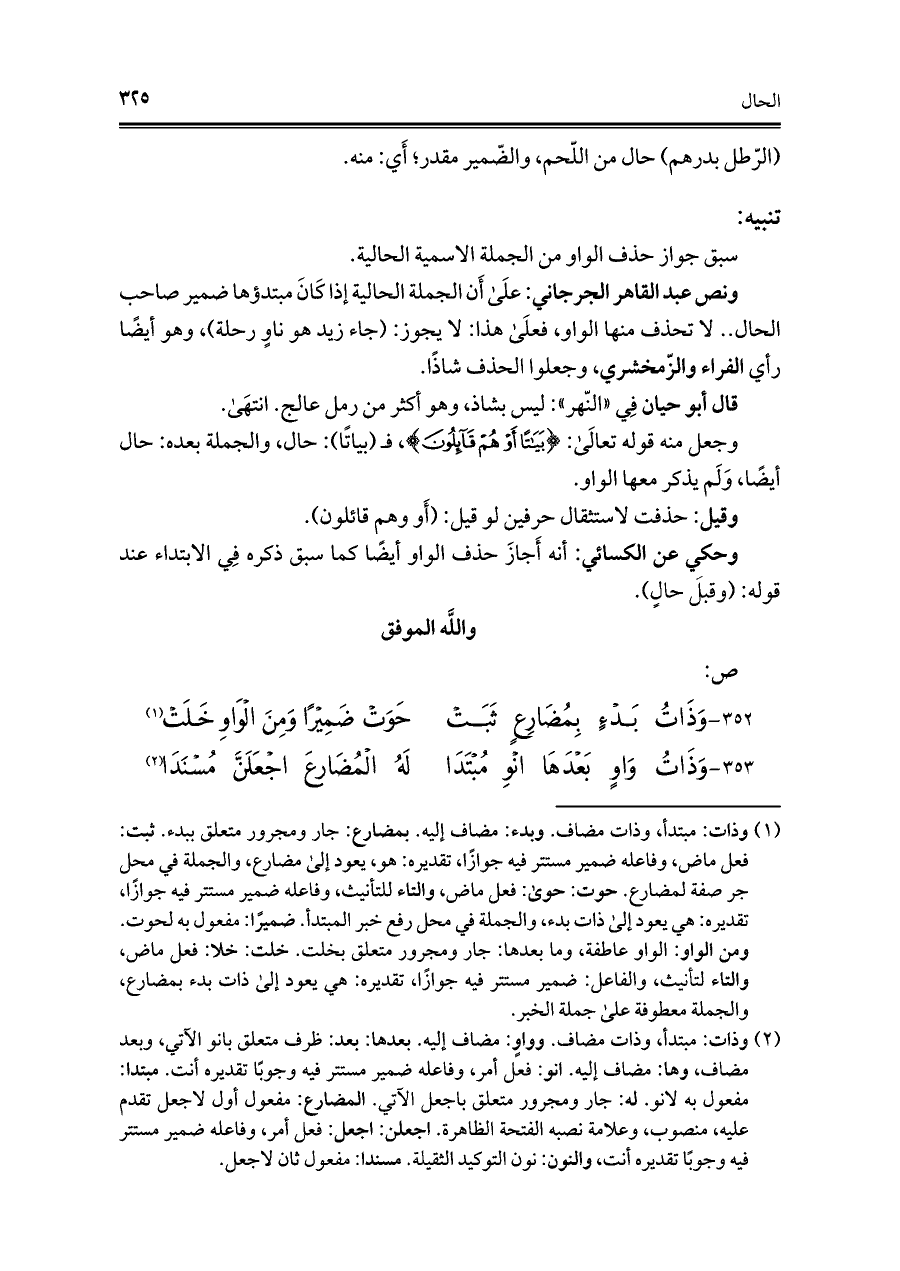 الحال ٣٢٥
(الرّطل بدرهم) حال من اللّحم، والضّمير مقدر؛ أَي: منه.
تنبيه:
سبق جواز حذف الواو من الجملة الاسمية الحالية.
ونص عبد القاهر الجرجاني: علَىٰ أَن الجملة الحالية إذا كَانَ مبتدؤها ضمير صاحب
الحال.. لا تحذف منها الواو، فعلَىٰ هذا: لا يجوز: (جاء زيد هو ناوٍ رحلة)، وهو أيضًا
رأي الفراء والزّمخشري، وجعلوا الحذف شاذًا.
قال أبو حيان فِي «النّهر»: ليس بشاذ، وهو أكثر من رمل عالج. انتهَىٰ.
وجعل منه قوله تعالَىٰ: ﴿بَيَٰتًا أَوۡ هُمۡ قَآئِلُونَ﴾، فـ (بياتًا): حال، والجملة بعده: حال
أيضًا، وَلَم يذكر معها الواو.
وقيل: حذفت لاستثقال حرفين لو قيل: (أَو وهم قائلون).
وحكي عن الكسائي: أنه أَجازَ حذف الواو أيضًا كما سبق ذكره فِي الابتداء عند
قوله: (وقبلَ حالٍ).
واللَّه الموفق
ص:
٣٥٢-وَذَاتُ بَـدْءٍ بِمُضَارِعٍ ثَبَـــتْ حَوَتْ ضَمِيْرًا وَمِنَ الْوَاوِ خَـلَتْ(١)
٣٥٣-وَذَاتُ وَاوٍ بَعْدَهَا انْوِ مُبْتَدَا لَهُ الْمُضَارِعَ اجْعَلَنَّ مُسْنَدَا(٢)
(١) وذات: مبتدأ، وذات مضاف. وبدء: مضاف إليه. بمضارع: جار ومجرور متعلق ببدء. ثبت:
فعل ماض، وفاعله ضمير مستتر فيه جوازًا، تقديره: هو، يعود إلىٰ مضارع، والجملة في محل
جر صفة لمضارع. حوت: حوىٰ: فعل ماض، والتاء للتأنيث، وفاعله ضمير مستتر فيه جوازًا،
تقديره: هي يعود إلىٰ ذات بدء، والجملة في محل رفع خبر المبتدأ. ضميرًا: مفعول به لحوت.
ومن الواو: الواو عاطفة، وما بعدها: جار ومجرور متعلق بخلت. خلت: خلا: فعل ماض،
والتاء لتأنيث، والفاعل: ضمير مستتر فيه جوازًا، تقديره: هي يعود إلىٰ ذات بدء بمضارع،
والجملة معطوفة علىٰ جملة الخبر.
(٢) وذات: مبتدأ، وذات مضاف. وواوٍ: مضاف إليه. بعدها: بعد: ظرف متعلق بانو الآتي، وبعد
مضاف، وها: مضاف إليه. انو: فعل أمر، وفاعله ضمير مستتر فيه وجوبًا تقديره أنت. مبتدا:
مفعول به لانو. له: جار ومجرور متعلق باجعل الآتي. المضارع: مفعول أول لاجعل تقدم
عليه، منصوب، وعلامة نصبه الفتحة الظاهرة. اجعلن: اجعل: فعل أمر، وفاعله ضمير مستتر
فيه وجوبًا تقديره أنت، والنون: نون التوكيد الثقيلة. مسندا: مفعول ثان لاجعل.